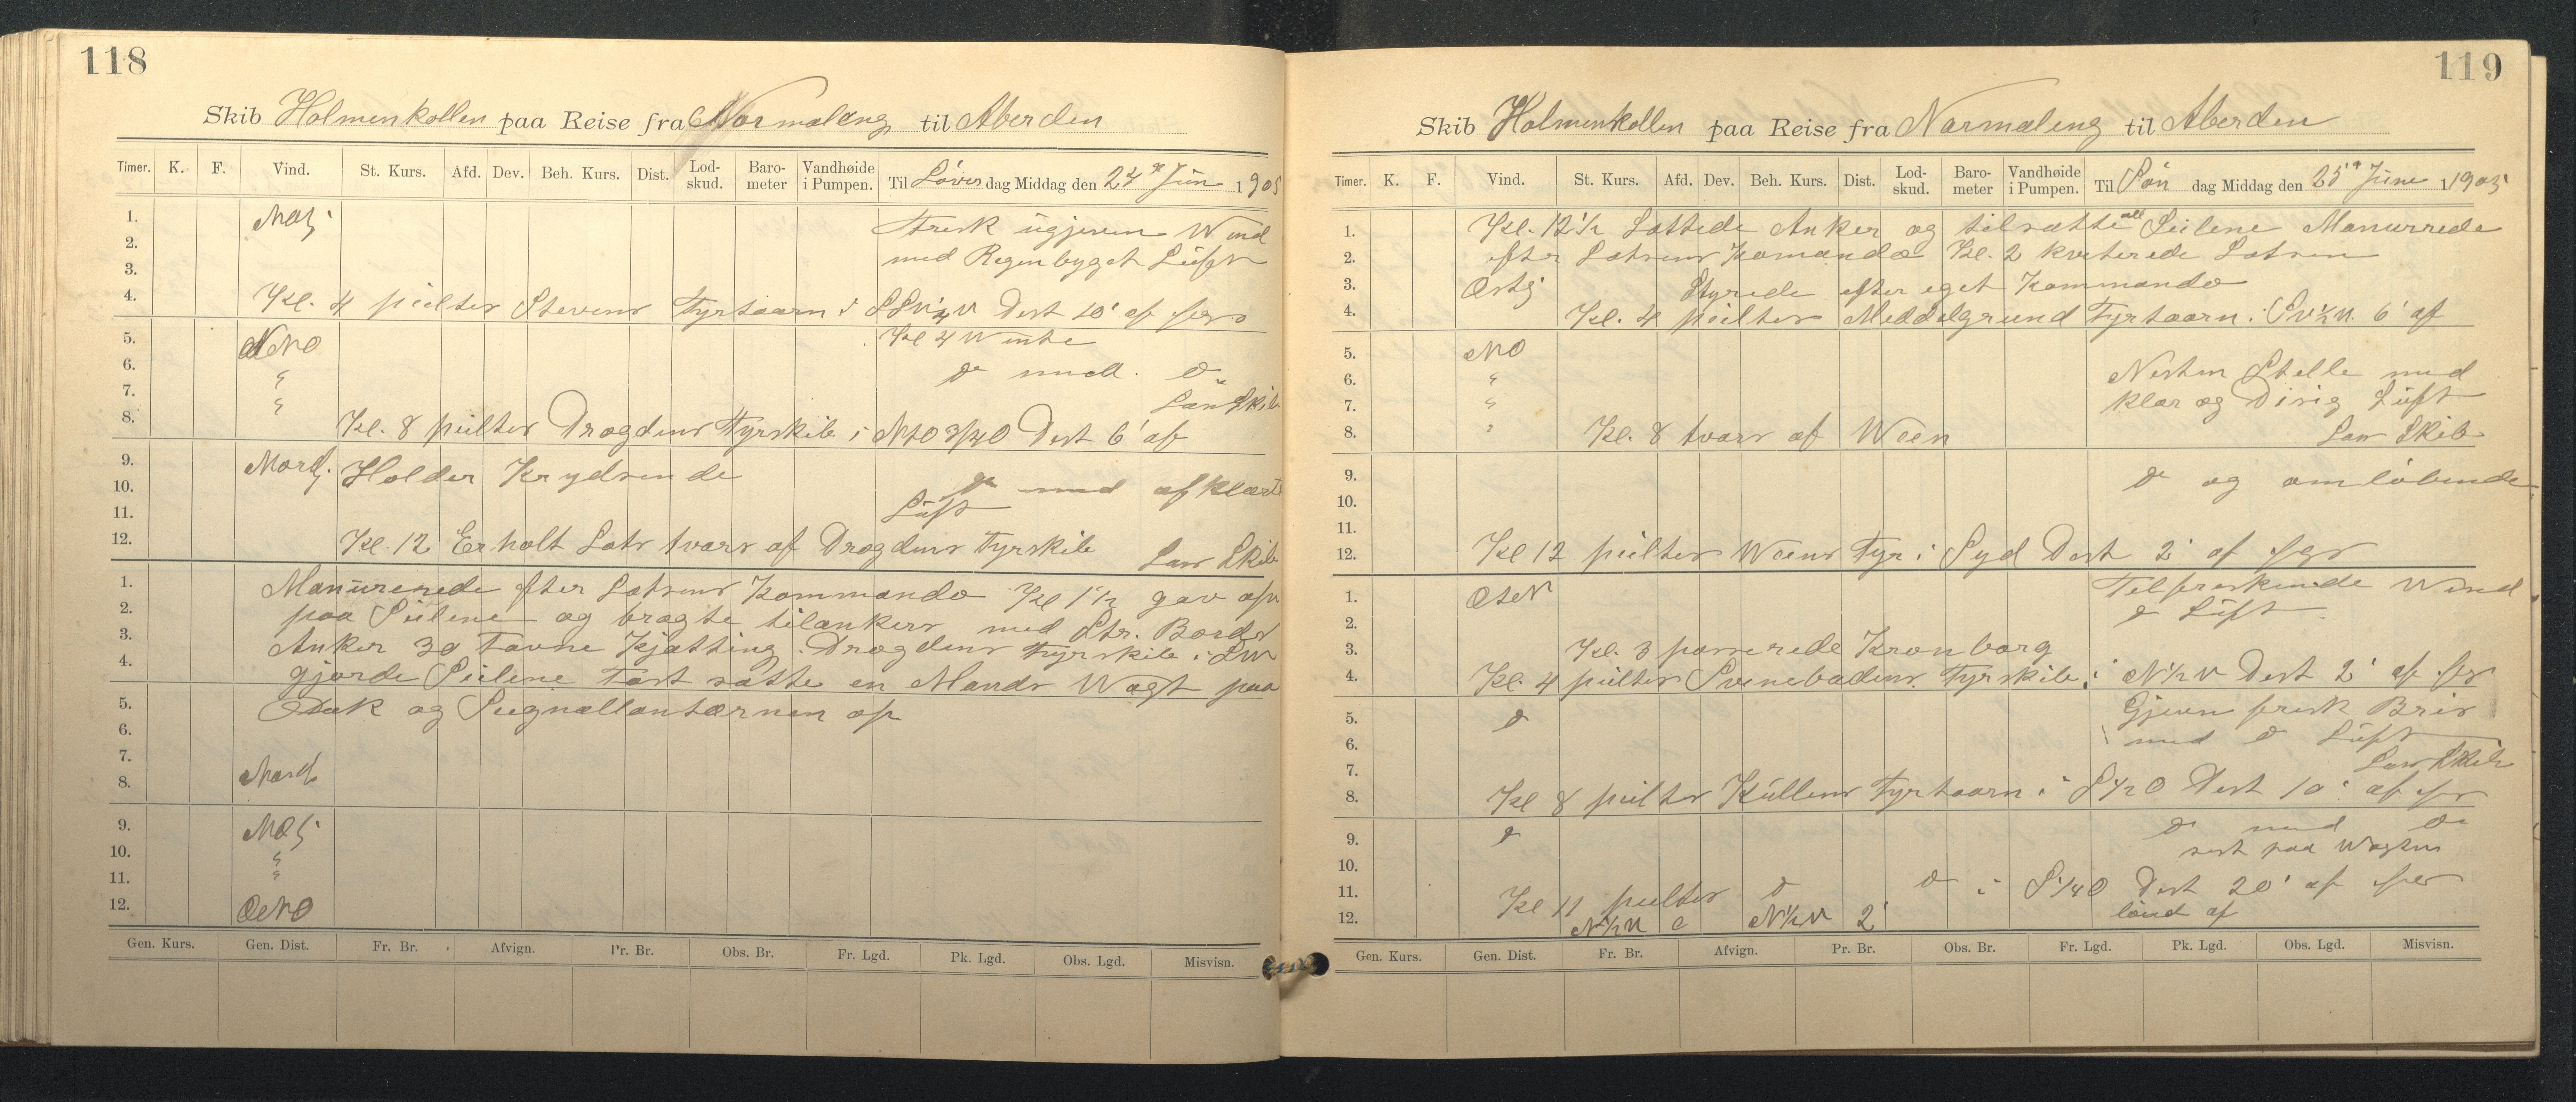 118
Skib Holmenkollen paa Reise fra Normaleng til Aberden
Timer. K. F. Vind. St. Kurs. Afd. Dev. Beh. Kurs. Dist. Lod-skud. Baro-meter Vandhøide i Pumpen. Til Löver dag Middag den 24de Jün 1905
1. NOlj Frisk ügjevn Wind
2. med Regenbyget Lüft
3.
4. Kl. 4 peilter Stevens Fyrtaarn i SSW¼W Dist 10' af
5. Kl 4 Wente
6. ONO do med do
7. " Lens Skib
8. " Kl. 8 peilter Drogdens Fyrskib i NtO 3/4O Dist 6' af
9. Nordl. Holder Krydsende
10. do med afklart
11. Lüft
12. Kl. 12 Erholt Lots tvars af Drogdens Fyrskib Lens Skib
1. Manürerede efter Lotsens Kommando Kl 1½ gav op
2. paa Seilene og bragte tilankers med Str. Bords
3. Anker 30 Favne Kjætting. Drogdens Fyrskib i SW
4. gjorde Seilene Fast satte en Mands Wagt paa
5. Dæk og Siegnallantærnen op
6.
7.
8. Nordl
9. NOlj
10. "
11. "
12. ONO
Gen. Kurs. Gen. Dist. Fr. Br. Afvign. Pr. Br. Obs. Br. Fr. Lgd. Pk. Lgd. Obs. Lgd. Misvisn.
119
Skib Holmenkollen paa Reise fra Normaleng til Aberden
Timer. K. F. Vind. St. Kurs. Afd. Dev. Beh. Kurs. Dist. Lod-skud. Baro-meter Vandhøide i Pumpen. Til Sön dag Middag den 25de Jüne 1905
1. Kl. 12½ Lettede Anker og tilsatte alle Seilene Manurrede
2. efter Lotsens Komando Kl. 2 kveterede Lotsen
3. Østlj Styrede efter eget Kommando
4. Kl. 4 peilter Meddelgrund Fyrtaarn i SW½W. 6' af
5. NO
6. " Nesten Stelle med
7. " klar og Disig Lüft
8. " Kl. 8 tvars af Ween Lens Skib
9. do og omlöbende
10.
11.
12. Kl 12 peilter Weens Fyr i Syd Dist 2' af
1. OtN Tilfreskende Wend
2. do Lüft
3. Kl. 3 passerede Kronborg
4. Kl. 4 peilter Svinebadens Fyrskib i N½W Dist 2' af
5. do Gjevn frisk Bris
6. med do Lüft
7. Lens Skib
8. Kl 8 peilter Küllens Fyrtaarn i S½O Dist 10' af
9. do do med do
10. sert paa Wagten
11. Kl 11 peilter do do i S¼O Dist 20' af
12. N½W 0 N½W 2' lünd af
Gen. Kurs. Gen. Dist. Fr. Br. Afvign. Pr. Br. Obs. Br. Fr. Lgd. Pk. Lgd. Obs. Lgd. Misvisn.